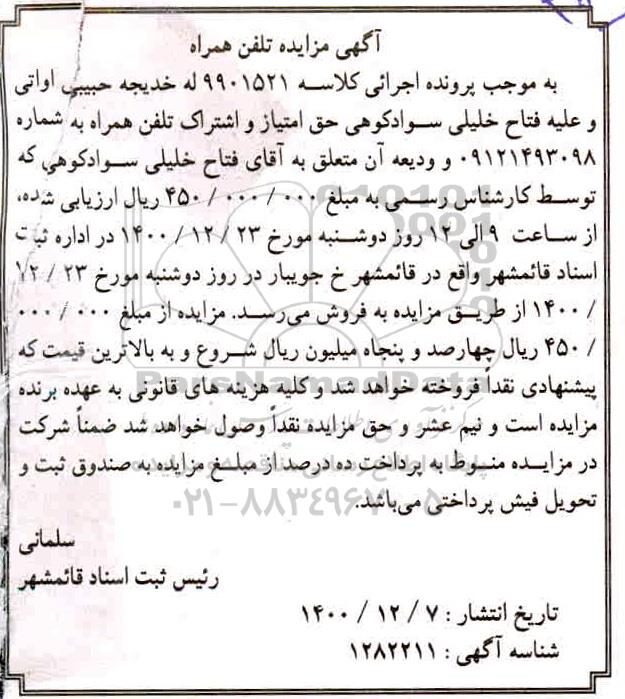 آگهی مزایده تلفن همراه
به موجب پرونده اجرائی کلاسه ۹۹۰۱۵۲۱ له خدیجه حبیبی اواتی
و علیه فتاح خلیلی سوادکوهی حق امتیاز و اشتراک تلفن همراه به شماره
۰۹۱۲۱۴۹۳۰۹۸ و ودیعه آن متعلق به آقای فتاح خلیلی سوادکوهی که
توسط کارشناس رسمی به مبلغ ۰۰۰ / ۰۰۰ / ۴۵۰ ریال ارزیابی شده،
از ساعت ۹ الی ۱۲ روز دوشنبه مورخ ۲۳ / ۱۲ / ۱۴۰۰ در اداره ثبت
اسناد قائمشهر واقع در قائمشهر خ جویبار در روز دوشنبه مورخ ۲۳ / ۱۲
/ ۱۴۰۰ از طریق مزایده به فروش می‌رسد. مزایده از مبلغ ۰۰۰ / ۰۰۰
/ ۴۵۰ ریال چهارصد و پنجاه میلیون ریال شروع و به بالاترین قیمت که
پیشنهادی نقداً فروخته خواهد شد و کلیه هزینه های قانونی به عهده برنده
مزایده است و نیم عشر و حق مزایده نقداً وصول خواهد شد ضمناً شرکت
در مزایده منوط به پرداخت ده درصد از مبلغ مزایده به صندوق ثبت و
تحویل فیش پرداختی می‌باشد.
سلمانی
رئیس ثبت اسناد قائمشهر
تاریخ انتشار : ۷ / ۱۲ / ۱۴۰۰
شناسه آگهی : ۱۲۸۲۲۱۱
ParsNamadData